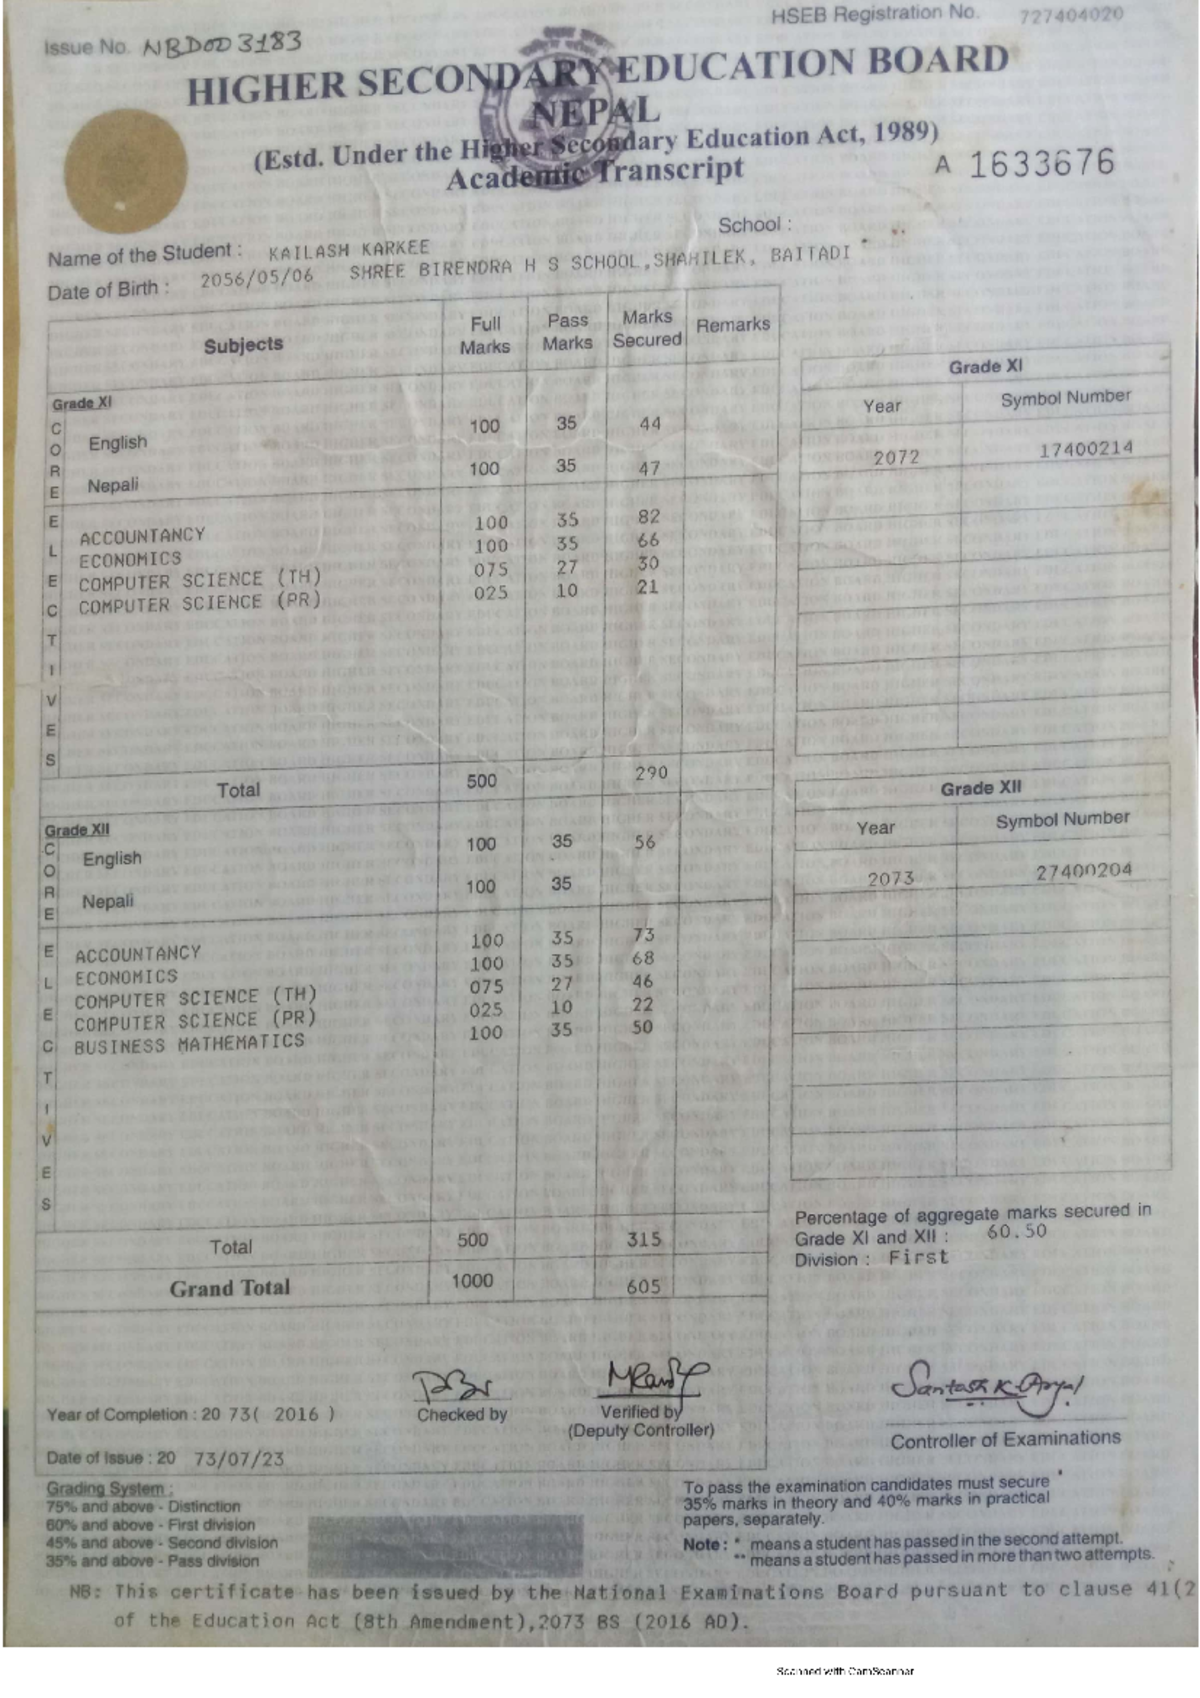 HSEB Registration No. 727404020
Issue No. NBD00 3183
HIGHER SECONDARY EDUCATION BOARD
NEPAL
(Estd. Under the Higher Secondary Education Act, 1989)
Academic Transcript
A 1633676
School :
Name of the Student : KAILASH KARKEE
Date of Birth : 2056/05/06 SHREE BIRENDRA H S SCHOOL,SHAHILEK, BAITADI
Subjects Full Marks Pass Marks Marks Secured Remarks
Grade XI
CORE
English 100 35 44
Nepali 100 35 47
ELECTIVES
ACCOUNTANCY 100 35 82
ECONOMICS 100 35 66
COMPUTER SCIENCE (TH) 075 27 30
COMPUTER SCIENCE (PR) 025 10 21
Total 500 290
Grade XII
CORE
English 100 35 56
Nepali 100 35
ELECTIVES
ACCOUNTANCY 100 35 73
ECONOMICS 100 35 68
COMPUTER SCIENCE (TH) 075 27 46
COMPUTER SCIENCE (PR) 025 10 22
BUSINESS MATHEMATICS 100 35 50
Total 500 315
Grand Total 1000 605
Grade XI
Year Symbol Number
2072 17400214
Grade XII
Year Symbol Number
2073 27400204
Percentage of aggregate marks secured in
Grade XI and XII : 60.50
Division : First
Year of Completion : 20 73( 2016 )
Checked by
Verified by
(Deputy Controller)
Santosh K Aryal
Controller of Examinations
Date of Issue : 20 73/07/23
Grading System :
75% and above - Distinction
60% and above - First division
45% and above - Second division
35% and above - Pass division
To pass the examination candidates must secure
35% marks in theory and 40% marks in practical
papers, separately.
Note : * means a student has passed in the second attempt.
** means a student has passed in more than two attempts.
NB: This certificate has been issued by the National Examinations Board pursuant to clause 41(2
of the Education Act (8th Amendment),2073 BS (2016 AD).
Scanned with CamScanner